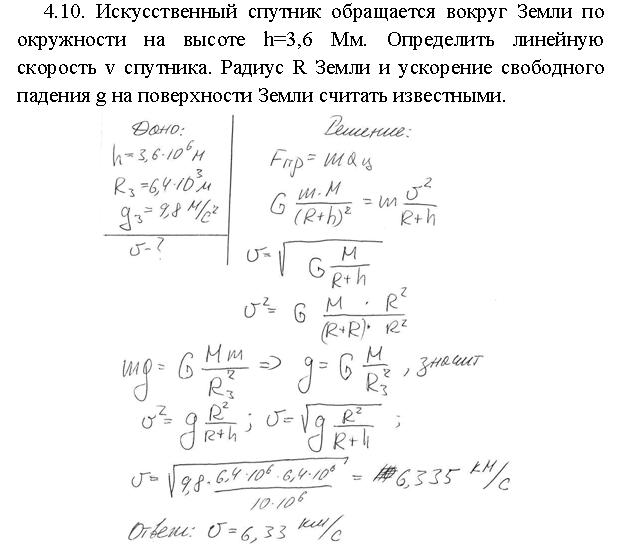 4.10. Искусственный спутник обращается вокруг Земли по
окружности на высоте h=3,6 Мм. Определить линейную
скорость v спутника. Радиус R Земли и ускорение свободного
падения g на поверхности Земли считать известными.
Дано:
h=3,6·10⁶м
R₃=6,4·10³м
g₃=9,8 м/с²
υ-?
Решение:
Fпр=maц
G m·M/(R+h)² = m υ²/R+h
υ=√(G M/R+h)
υ²= G M · R²/(R+R)· R²
mg= G Mm/R₃² => g= G M/R₃², значит
υ²= g R²/R+h ; υ=√(g R²/R+h) ;
υ=√(9,8· 6,4·10⁶·6,4·10⁶/10·10⁶) = 6,335 км/с
Ответ: υ=6,33 км/с